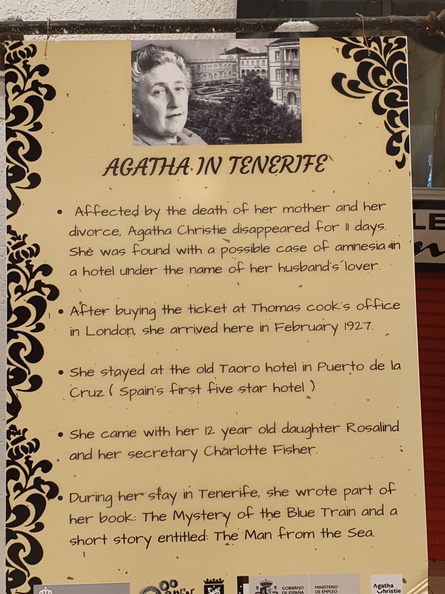 AGATHA IN TENERIFE
• Affected by the death of her mother and her
divorce, Agatha Christie disappeared for 11 days.
She was found with a possible case of amnesia in
a hotel under the name of her husband's lover.
• After buying the ticket at Thomas cook's office
in London, she arrived here in February 1927.
• She stayed at the old Taoro hotel in Puerto de la
Cruz ( Spain's first five star hotel )
• She came with her 12 year old daughter Rosalind
and her secretary Charlotte Fisher.
• During her stay in Tenerife, she wrote part of
her book: The Mystery of the Blue Train and a
short story entitled: The Man from the Sea.
GOBIERNO
DE ESPAÑA
MINISTERIO
DE EMPLEO
Agatha
Christie
LE